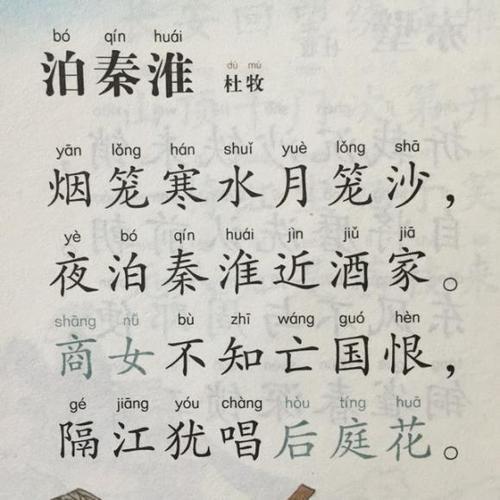 bó qín huái
泊秦淮 dù mù 杜牧
yān lǒng hán shuǐ yuè lǒng shā
烟笼寒水月笼沙，
yè bó qín huái jìn jiǔ jiā
夜泊秦淮近酒家。
shāng nǚ bù zhī wáng guó hèn
商女不知亡国恨，
gé jiāng yóu chàng hòu tíng huā
隔江犹唱后庭花。